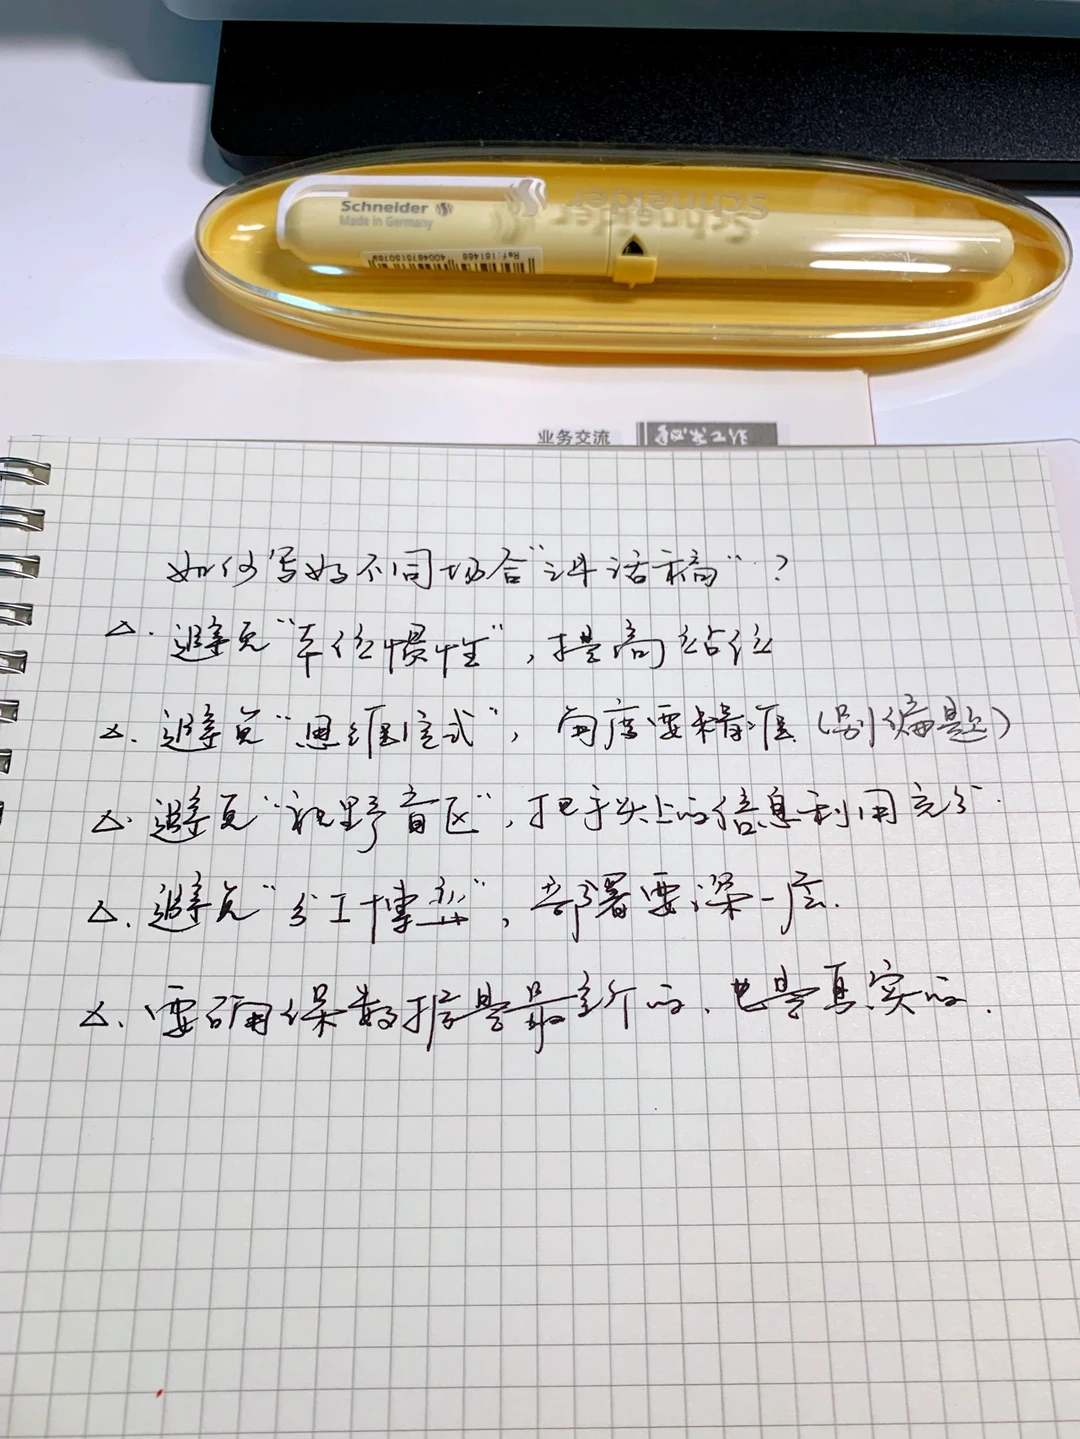 Schneider
Made in Germany
Schneider
Schneider
Ref.: 161466
业务交流
如何写好不同场合“讲话稿”?
△. 避免“本位惯性”, 提高站位
△. 避免“思维定式”, 角度要精准(别偏题)
△. 避免“视野盲区”, 把手头上的信息利用充分.
△. 避免“分工博弈”, 部署要深一层.
△. 要确保数据是最新的、也是真实的.